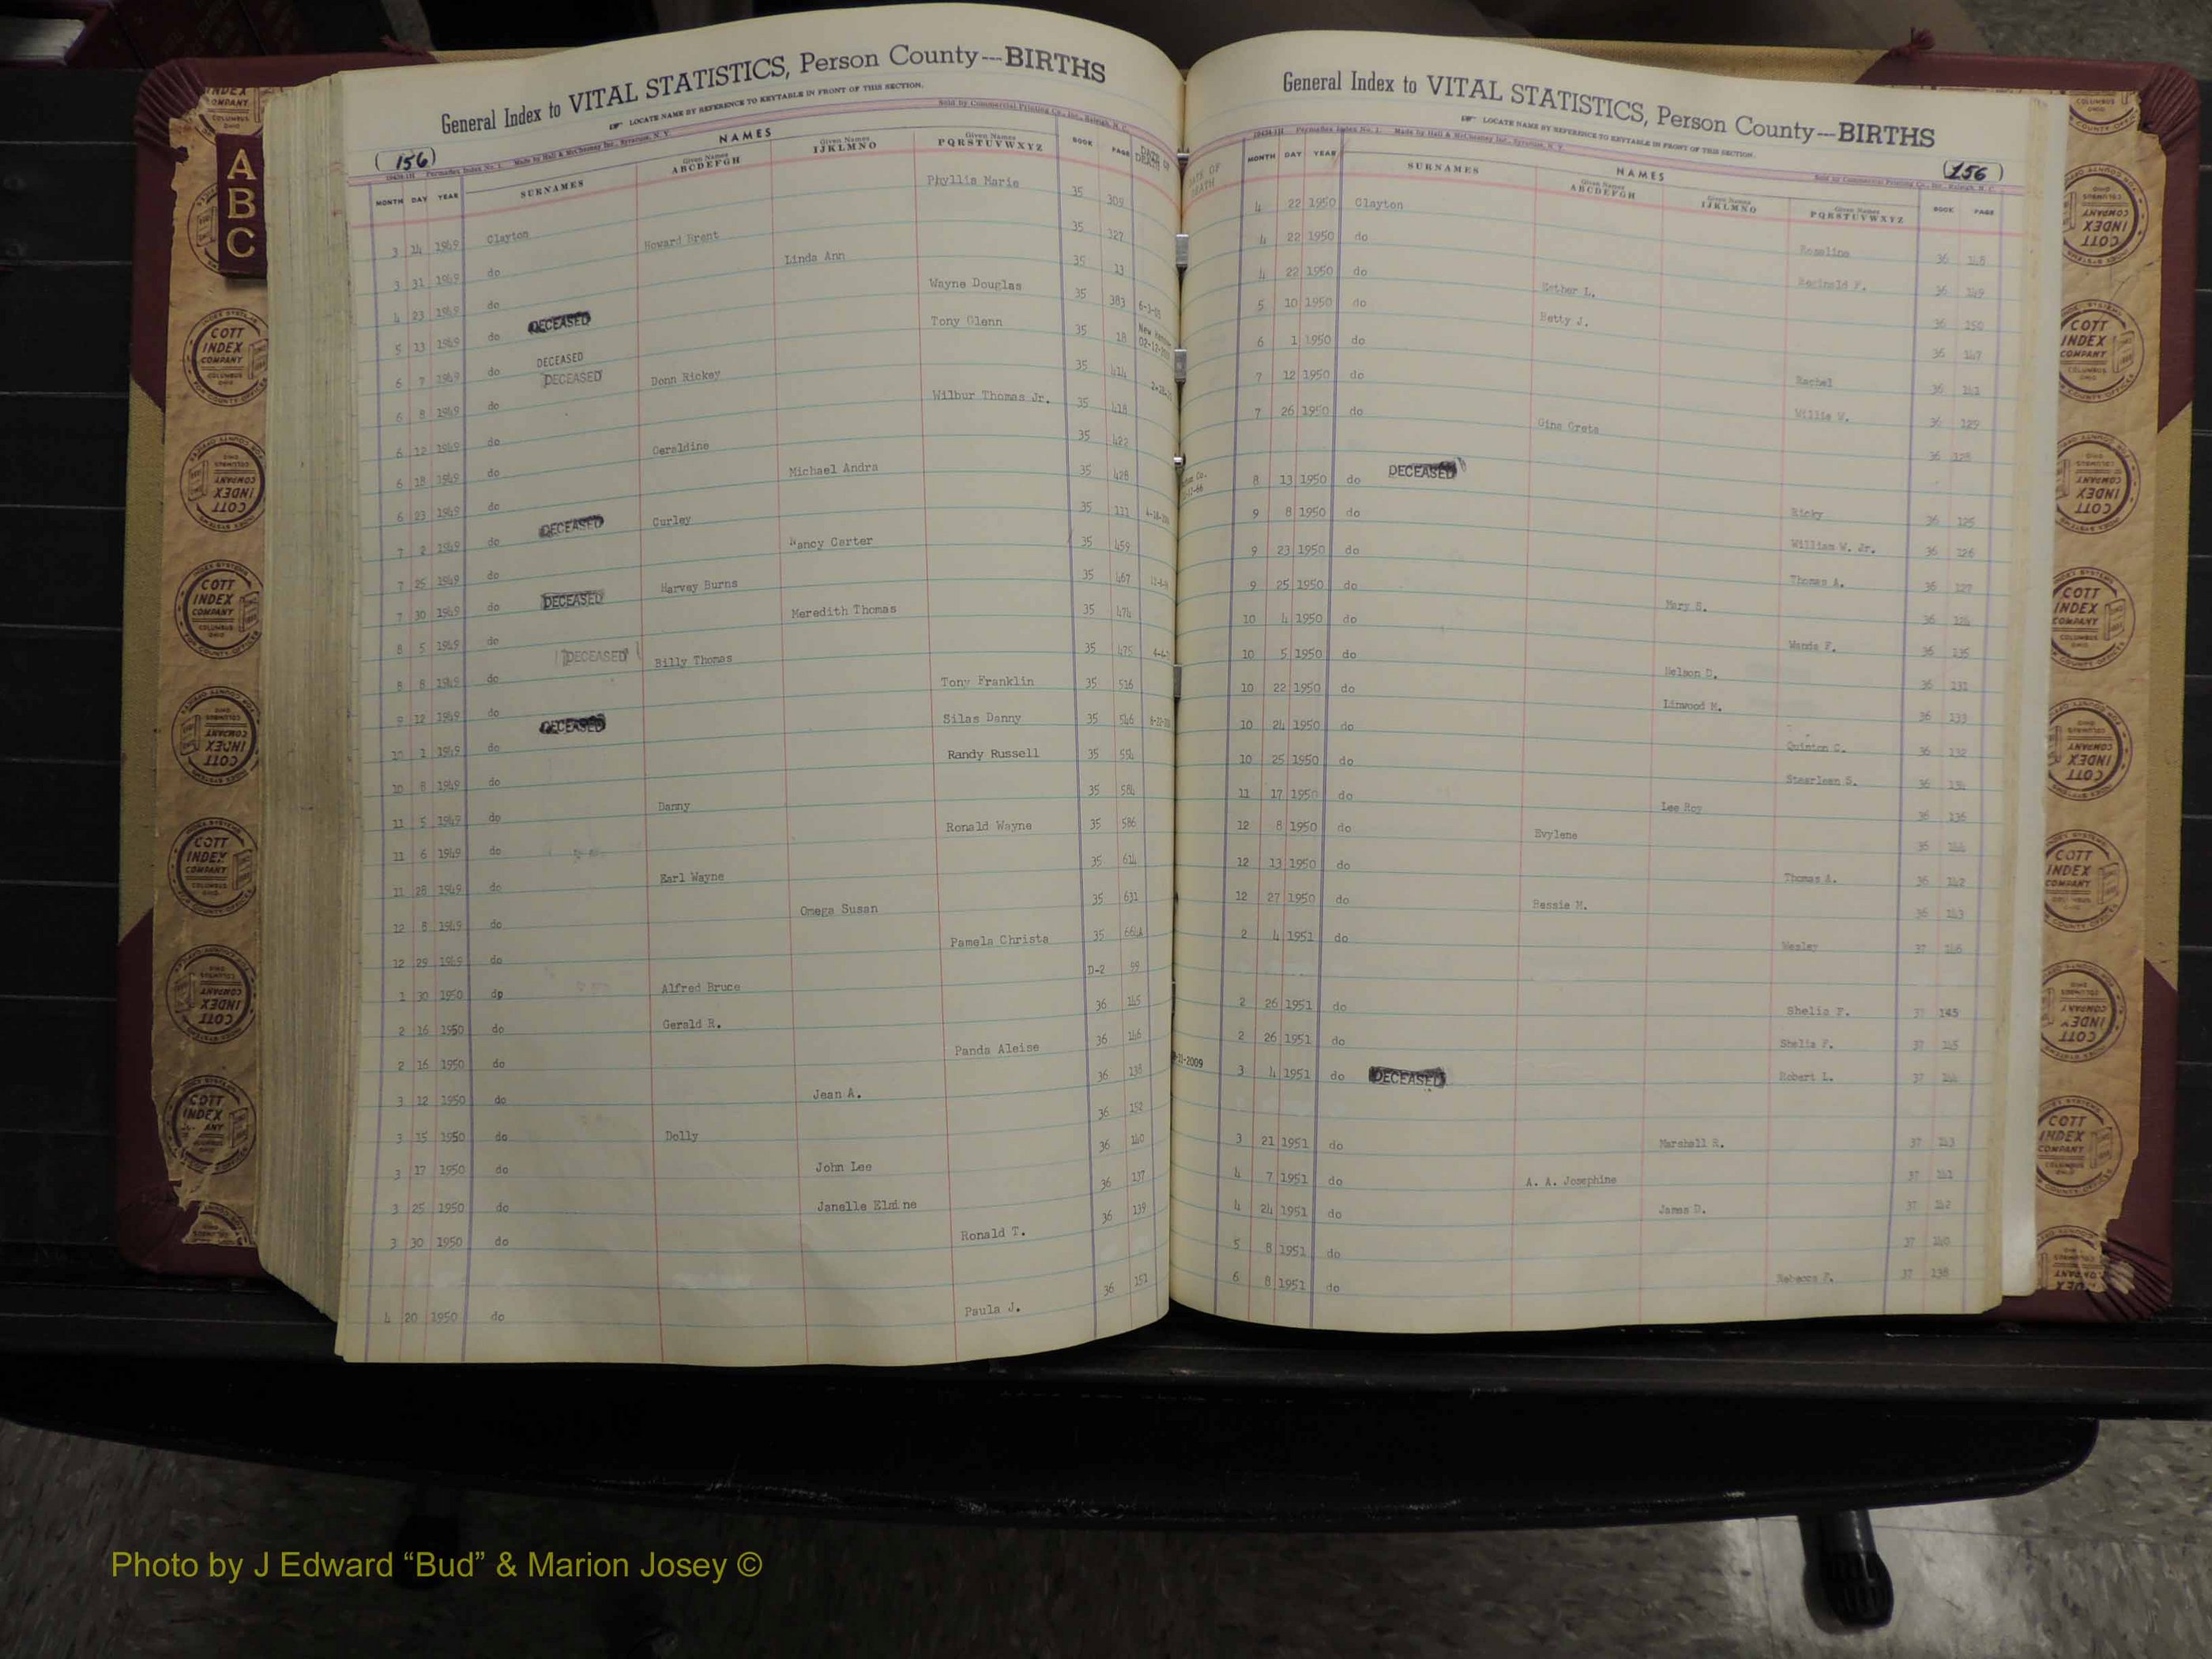 General Index to VITAL STATISTICS, Person County---BIRTHS
LOCATE NAME BY REFERENCE TO KEYTABLE IN FRONT OF THIS SECTION.
Sold by Commercial Printing Co., Inc., Raleigh, N. C.
(156)
Made by Hall & McChesney Inc., Syracuse, N. Y.
NAMES
MONTH DAY YEAR SURNAMES Given Names ABCDEFGH Given Names IJKLMNO Given Names PQRSTUVWXYZ BOOK PAGE DATE OF DEATH
3 14 1949 Clayton Phyllis Marie 35 309
3 31 1949 do Howard Brent 35 327
4 23 1949 do Linda Ann 35 13
5 13 1949 do DECEASED Wayne Douglas 35 383 6-3-05
6 7 1949 do DECEASED Tony Glenn 35 18
6 8 1949 do DECEASED Donn Rickey 35 414
6 12 1949 do Wilbur Thomas Jr. 35 418
6 18 1949 do Geraldine 35 422
6 23 1949 do Michael Andra 35 428
7 2 1949 do DECEASED Curley 35 111
7 25 1949 do Nancy Carter 35 459
7 30 1949 do DECEASED Harvey Burns 35 467
8 5 1949 do Meredith Thomas 35 474
8 8 1949 do DECEASED Billy Thomas 35 475
9 12 1949 do Tony Franklin 35 516
10 1 1949 do DECEASED Silas Danny 35 546
10 8 1949 do Randy Russell 35 554
11 5 1949 do Danny 35 584
11 6 1949 do Ronald Wayne 35 586
11 28 1949 do Earl Wayne 35 614
12 8 1949 do Omega Susan 35 631
12 29 1949 do Pamela Christa 35 664A
1 30 1950 do Alfred Bruce D-2 99
2 16 1950 do Gerald R. 36 145
2 16 1950 do Panda Aleise 36 146
3 12 1950 do Jean A. 36 138
3 15 1950 do Dolly 36 152
3 17 1950 do John Lee 36 140
3 25 1950 do Janelle Elaine 36 137
3 30 1950 do Ronald T. 36 139
4 20 1950 do Paula J. 36 151
General Index to VITAL STATISTICS, Person County--BIRTHS
LOCATE NAME BY REFERENCE TO KEYTABLE IN FRONT OF THIS SECTION.
Made by Hall & McChesney Inc., Syracuse, N. Y.
(156)
NAMES
DATE OF DEATH MONTH DAY YEAR SURNAMES Given Names ABCDEFGH Given Names IJKLMNO Given Names PQRSTUVWXYZ BOOK PAGE
4 22 1950 Clayton Rosaline 36 148
4 22 1950 do Reginald F. 36 149
4 22 1950 do Esther L. 36 150
5 10 1950 do Betty J. 36 147
6 1 1950 do Rachel 36 141
7 12 1950 do Willie W. 36 129
7 26 1950 do Gina Greta 36 128
8 13 1950 do DECEASED Ricky 36 125
9 8 1950 do William W. Jr. 36 126
9 23 1950 do Thomas A. 36 127
9 25 1950 do Mary S. 36
10 4 1950 do Wanda F. 36 135
10 5 1950 do Nelson D. 36 131
10 22 1950 do Linwood M. 36 133
10 24 1950 do Quinton C. 36 132
10 25 1950 do Stearleen S. 36 134
11 17 1950 do Lee Roy 36 136
12 8 1950 do Evylene 36 144
12 13 1950 do Thomas A. 36 142
12 27 1950 do Bessie M. 36 143
2 4 1951 do Wesley 37 146
2 26 1951 do Shelia F. 37 145
2 26 1951 do Shelia F. 37 145
3 4 1951 do DECEASED Robert L. 37 144
3 21 1951 do Marshall R. 37 143
4 7 1951 do A. A. Josephine 37 141
4 24 1951 do James D. 37 142
5 8 1951 do 37 140
6 8 1951 do Rebecca F. 37 138
A
B
C
COTT
INDEX
COMPANY
COLUMBUS
OHIO
Photo by J Edward “Bud” & Marion Josey ©